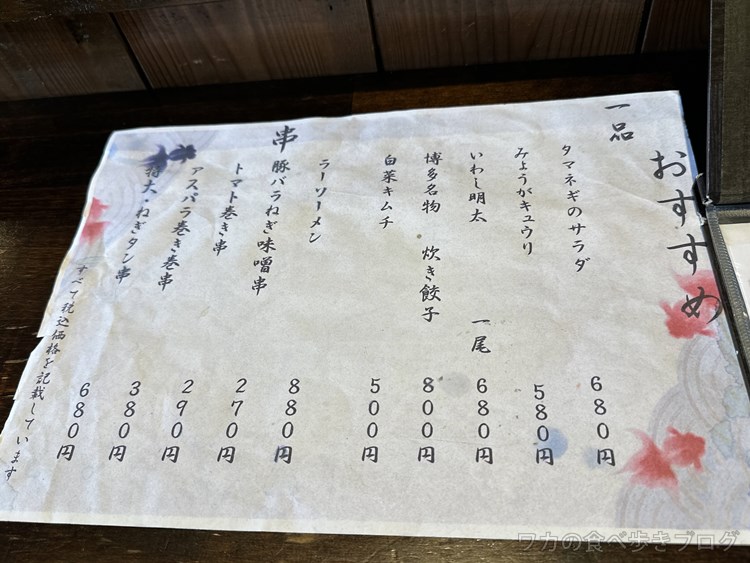 おすすめ
一品
タマネギのサラダ 680円
みょうがキュウリ 580円
いわし明太 一尾 680円
博多名物 炊き餃子 800円
白菜キムチ 500円
ラーソーメン 880円
串
豚バラねぎ味噌串 270円
トマト巻き串 290円
アスパラ巻き巻串 380円
特大・ねぎタン串 680円
すべて税込価格を記載しています
ワカの食べ歩きブログ